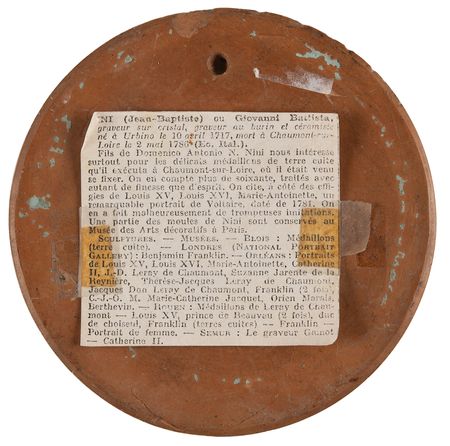 NI (Jean-Baptiste) ou Giovanni Battista,
graveur sur cristal, graveur au burin et céramiste
né à Urbino le 10 avril 1717, mort à Chaumont-sur-
Loire le 2 mai 1786 (Ec. Ital.).
Fils de Domenico Antonio N. Nini nous intéresse
surtout pour les délicats médaillons de terre cuite
qu'il exécuta à Chaumont-sur-Loire, où il était venu
se fixer. On en compte plus de soixante, traités avec
autant de finesse que d'esprit. On cite, à côté des effi-
gies de Louis XV, Louis XVI, Marie-Antoinette, un
remarquable portrait de Voltaire, daté de 1781. On
en a fait malheureusement de trompeuses imitations.
Une partie des moules de Nini sont conservés au
Musée des Arts décoratifs à Paris.
SCULPTURES. — MUSÉES. — BLOIS : Médaillons
(terre cuite). — LONDRES (NATIONAL PORTRAIT
GALLERY) : Benjamin Franklin. — ORLÉANS : Portraits
de Louis XV, Louis XVI, Marie-Antoinette, Catherine
II, J.-D. Leray de Chaumont, Suzanne Jarente de la
Reynière, Thérèse-Jacques Leray de Chaumont,
Jacques Don Leray de Chaumont, Franklin (2 fois),
C.-J.-G. M. Marie-Catherine Jacquet, Orian Marais,
Berthevin. — ROUEN : Médailons de Leray de Chau-
mont — Louis XV, prince de Beauveau (2 fois), duc
de choiseul, Franklin (terres cuites) — Franklin —
Portrait de femme. — SEMUR : Le graveur
— Catherine II.